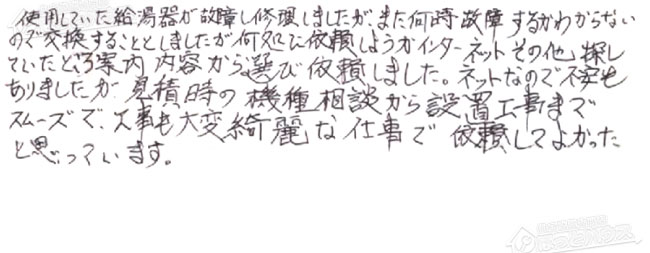 使用していた給湯器が故障し修理しましたが、また何時故障するかわからない
ので交換することとしましたが何処に依頼しようかインターネットその他、探し
ていたところ案内内容から選び依頼しました。ネットなので不安も
ありましたが見積時の機種相談から設置工事まで
スムーズで、工事も大変綺麗な仕事で依頼してよかった
と思っています。